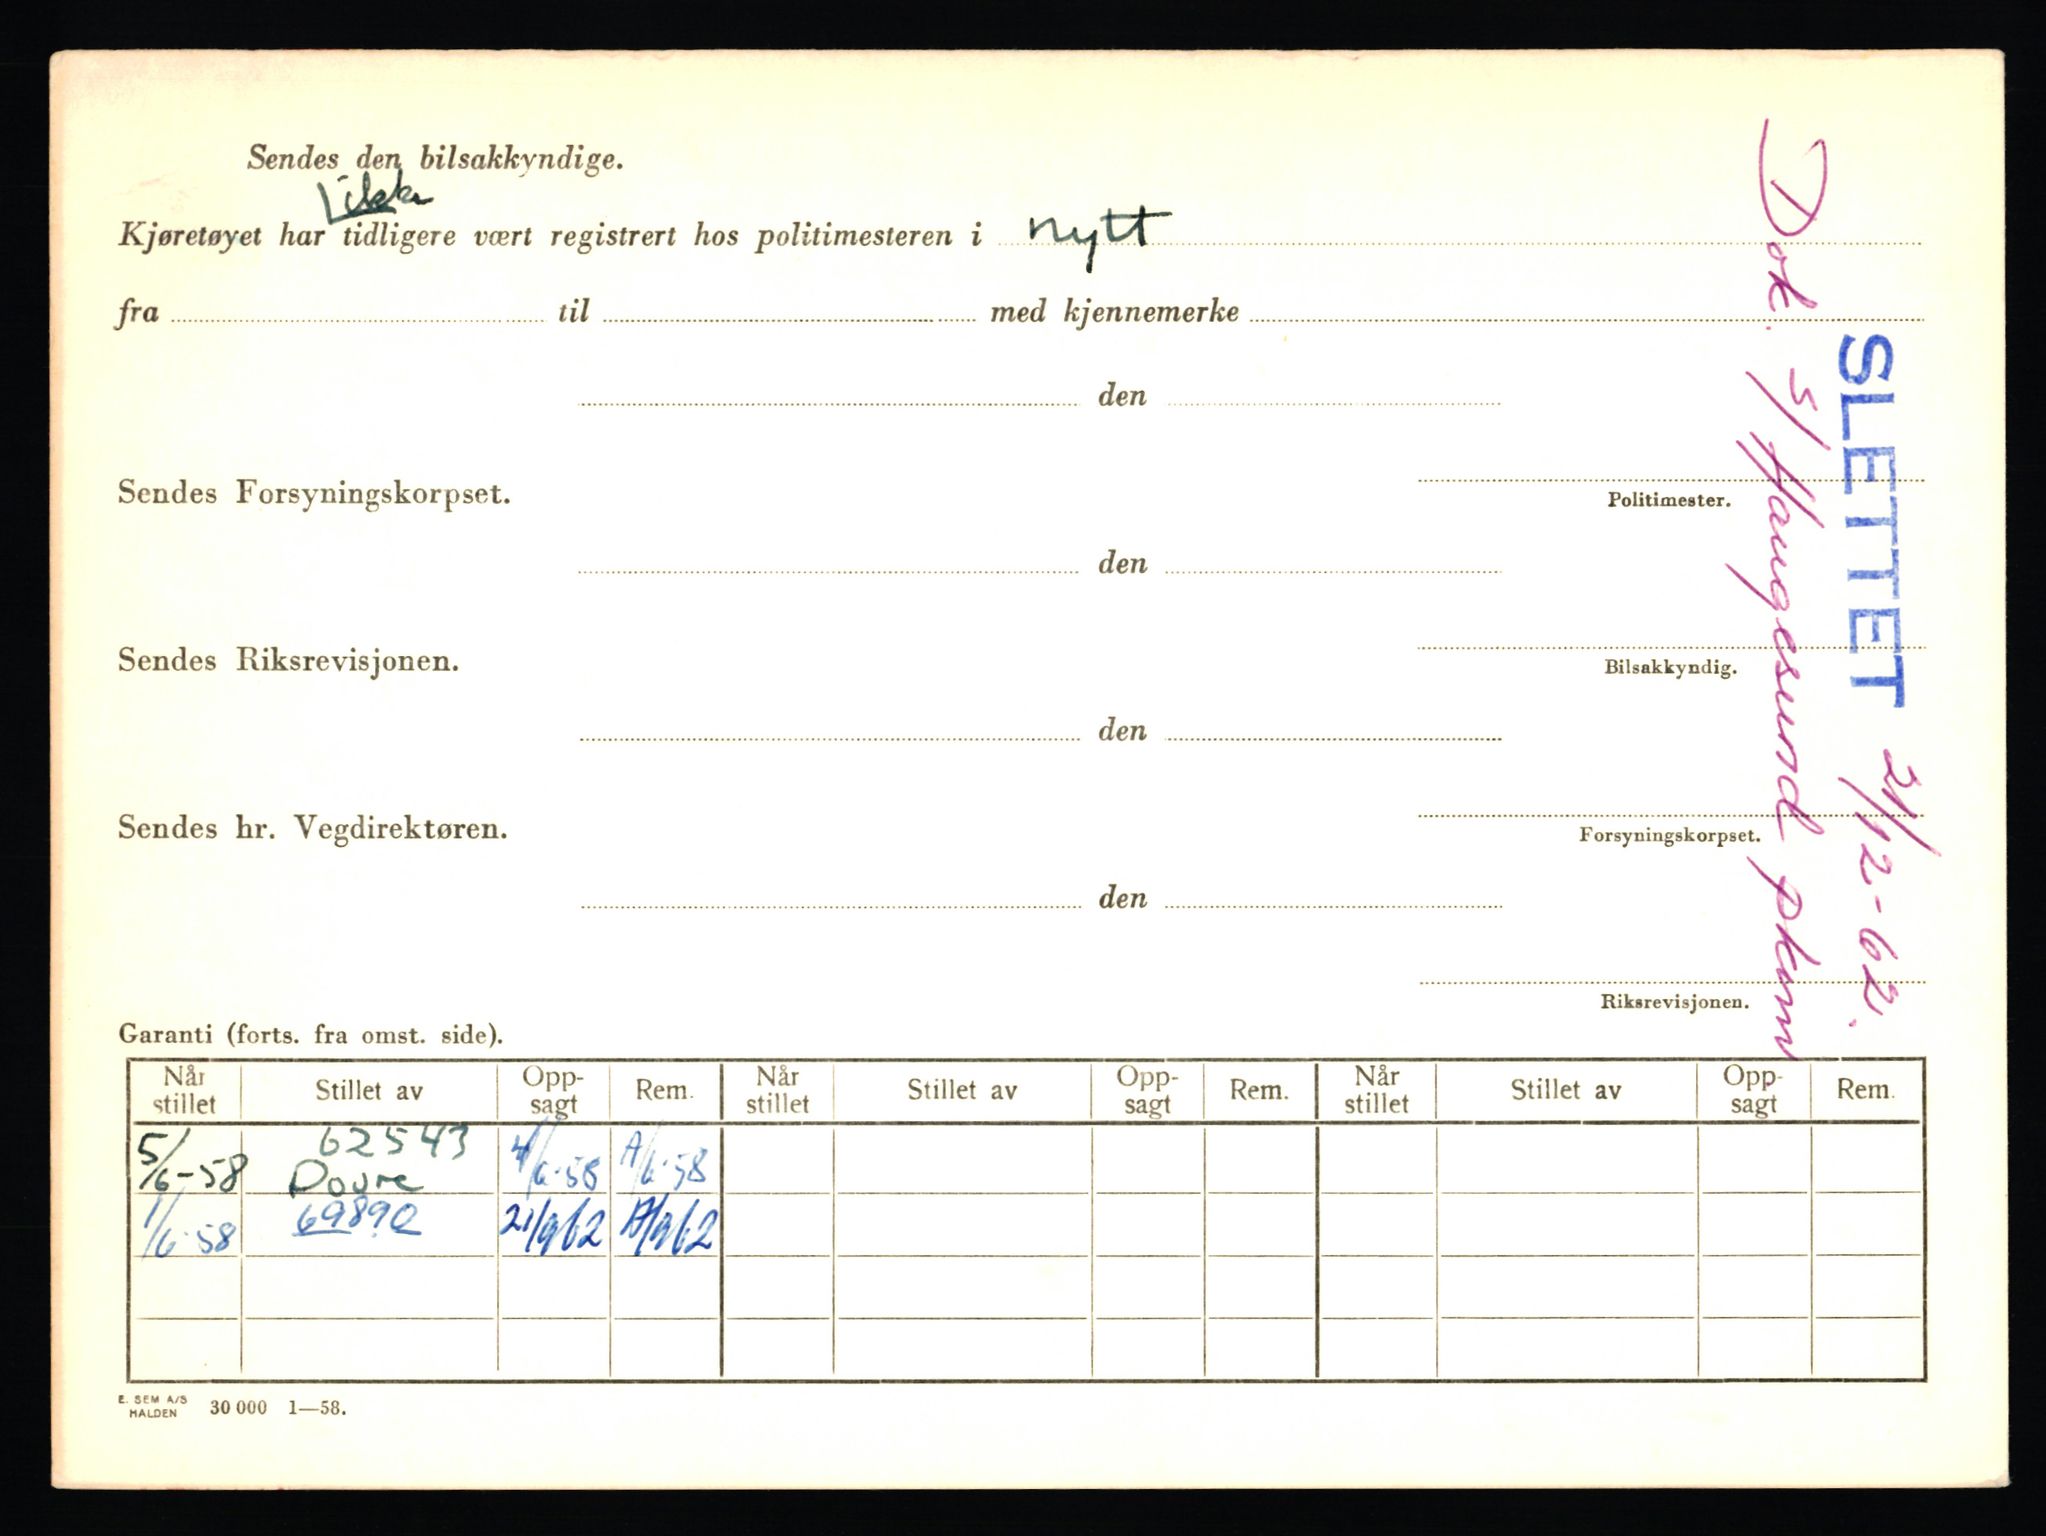 Sendes den bilsakkyndige.
ikke
Kjøretøyet har tidligere vært registrert hos politimesteren i nytt
fra til med kjennemerke
den
Sendes Forsyningskorpset.
Politimester.
den
Sendes Riksrevisjonen.
Bilsakkyndig.
den
Sendes hr. Vegdirektøren.
Forsyningskorpset.
den
Riksrevisjonen.
Dok. s/ Haugesund pkam
SLETTET 21/12-62.
Garanti (forts. fra omst. side).
Når stillet Stillet av Opp-sagt Rem. Når stillet Stillet av Opp-sagt Rem. Når stillet Stillet av Opp-sagt Rem.
5/6-58 62543 Dovre 4/6-58 A/6-58
1/6-58 69890 21/9 62 A/9 62
E. SEM A/S
HALDEN 30 000 1—58.